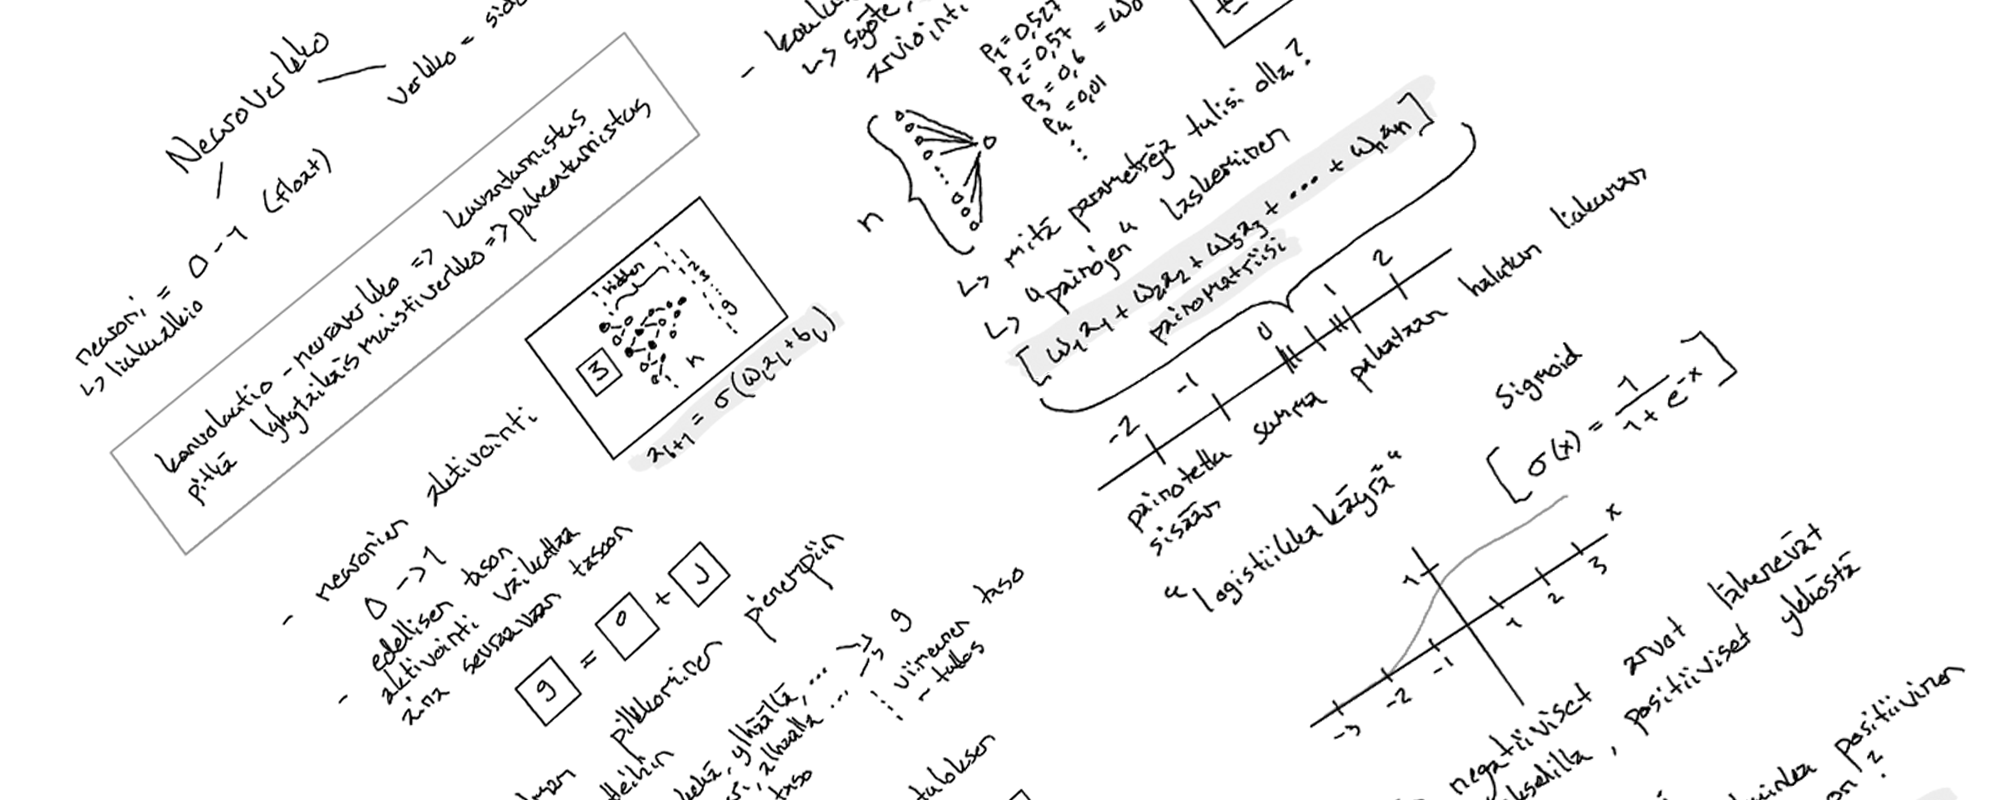 Neuroverkko
verkko =
neuroni = 0-1 (float)
↳ liukuvalkio
konvoluutio-neuroverkko => kuvantunnistus
pitkä lyhytaikaismuistiverkko => puheentunnistus
hidden
1
2
3
...
9
3
n
a₁₊₁ = σ(w₁a₁+b₁)
- neuronien aktivointi
0 -> 1
- edellisen tason
aktivointi vaikuttaa
aina seuraavaan tasoon
9 = o +
pilkkominen pienempiin
ylhäällä, ...
alhaalla ...
taso
-> 9
viimeinen taso
- tulos
tuloksen
↳ syöte,
arviointi
P₁=0,527
P₂=0,57
P₃=0,6
P₄=0,01
...
n
↳ mitä parametrejä tulisi olla?
↳ "painojen" laskeminen
[w₁a₁ + w₂a₂ + w₃a₃ + ... + wₙaₙ]
painomatriisi
-2 -1 0 1 2
painotettu summa puhutaan halutun liukuman
sisään
"logistiikka käyrä"
Sigmoid
[σ(x) = 1 / 1+e^-x]
1
x
-3 -2 -1 1 2 3
negatiiviset arvot lähenevät
, positiiviset ykköstä
kuinka positiivinen
on?